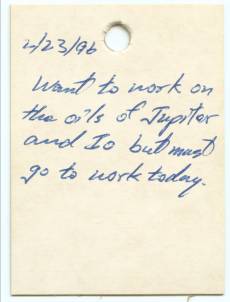 2/23/96
Want to work on
the oils of Jupiter
and Io but must
go to work today.